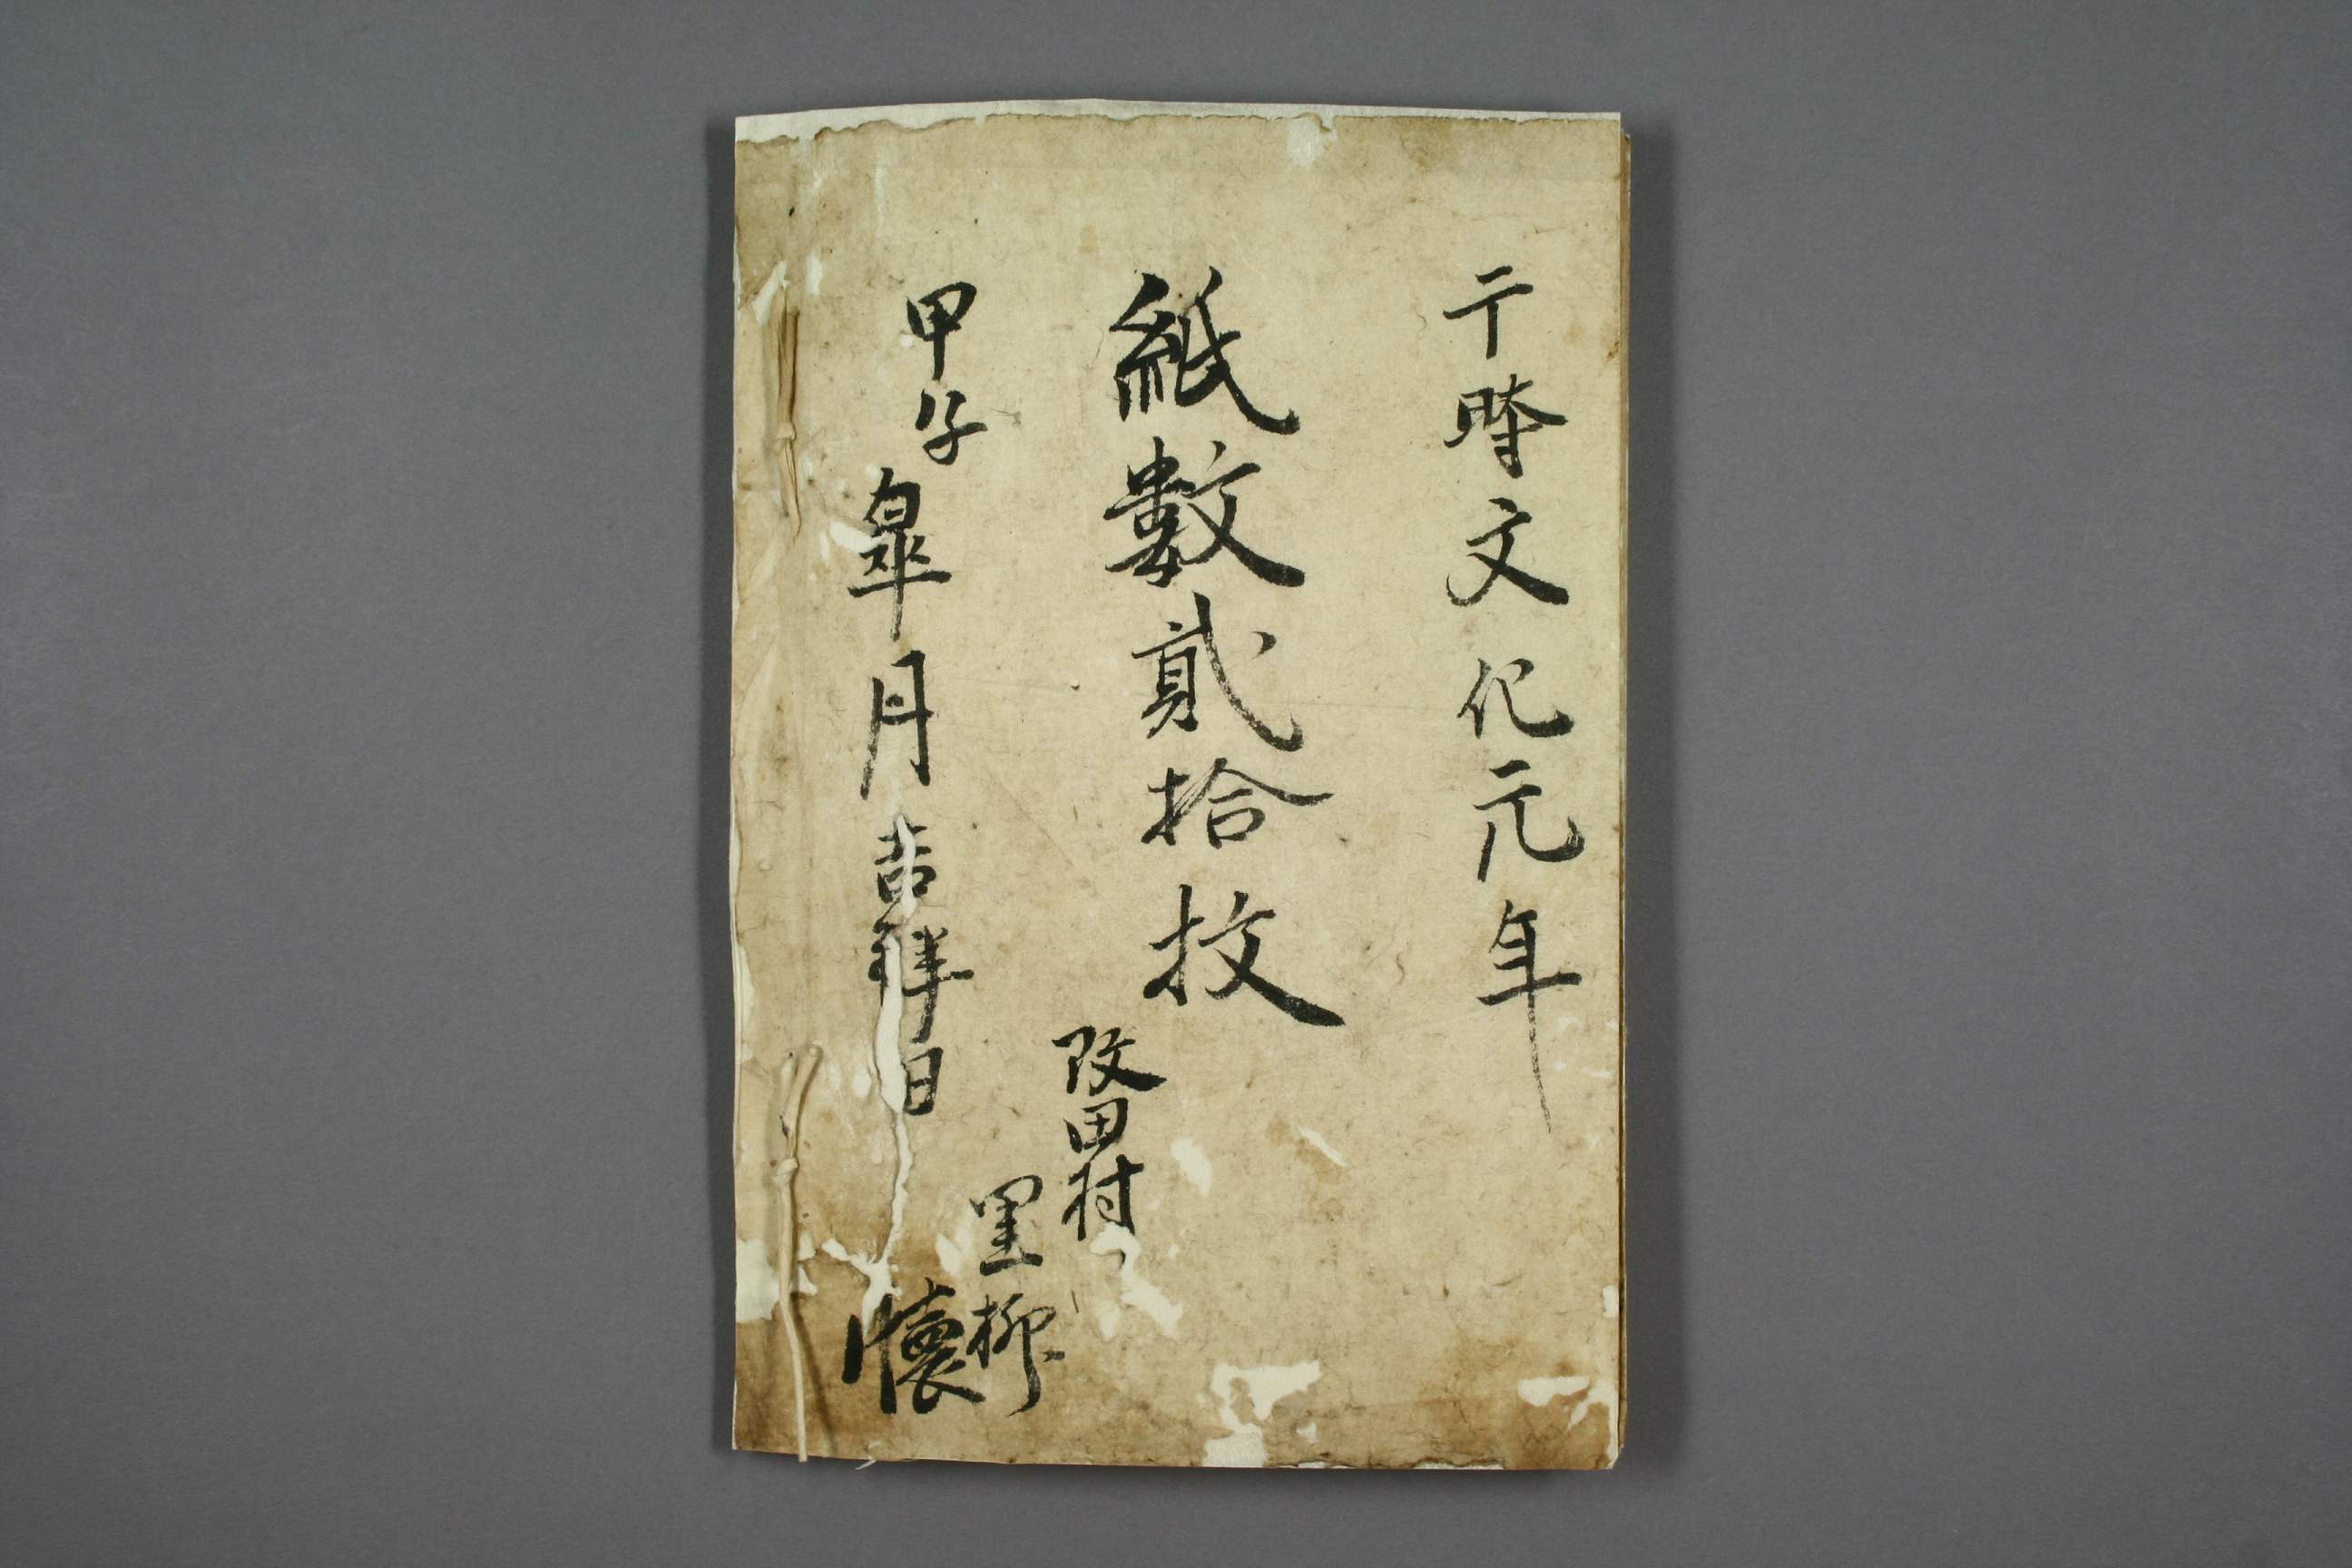 于時文化元年
紙數貳拾枚
改田村
里柳
懷
甲子皐月吉祥日